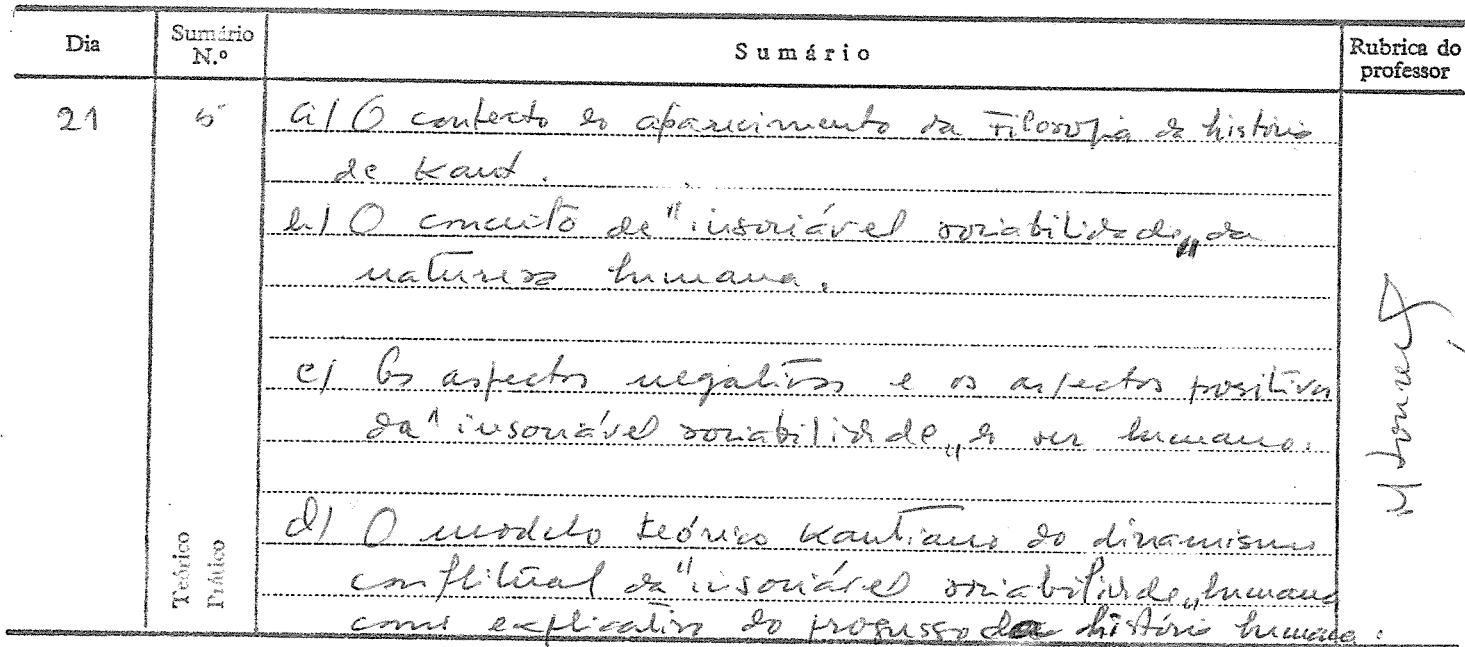 Dia Sumário N.º Sumário Rubrica do professor
21 5 a) O contexto do aparecimento da Filosofia da história
de Kant.
b) O conceito de "insociável sociabilidade" da
natureza humana.
c) Os aspectos negativos e os aspectos positivos
da "insociável sociabilidade" do ser humano.
d) O modelo teórico Kantiano do dinamismo
conflitual da "insociável sociabilidade" humana
como explicativo do progresso da história humana.
Teórico
Prático